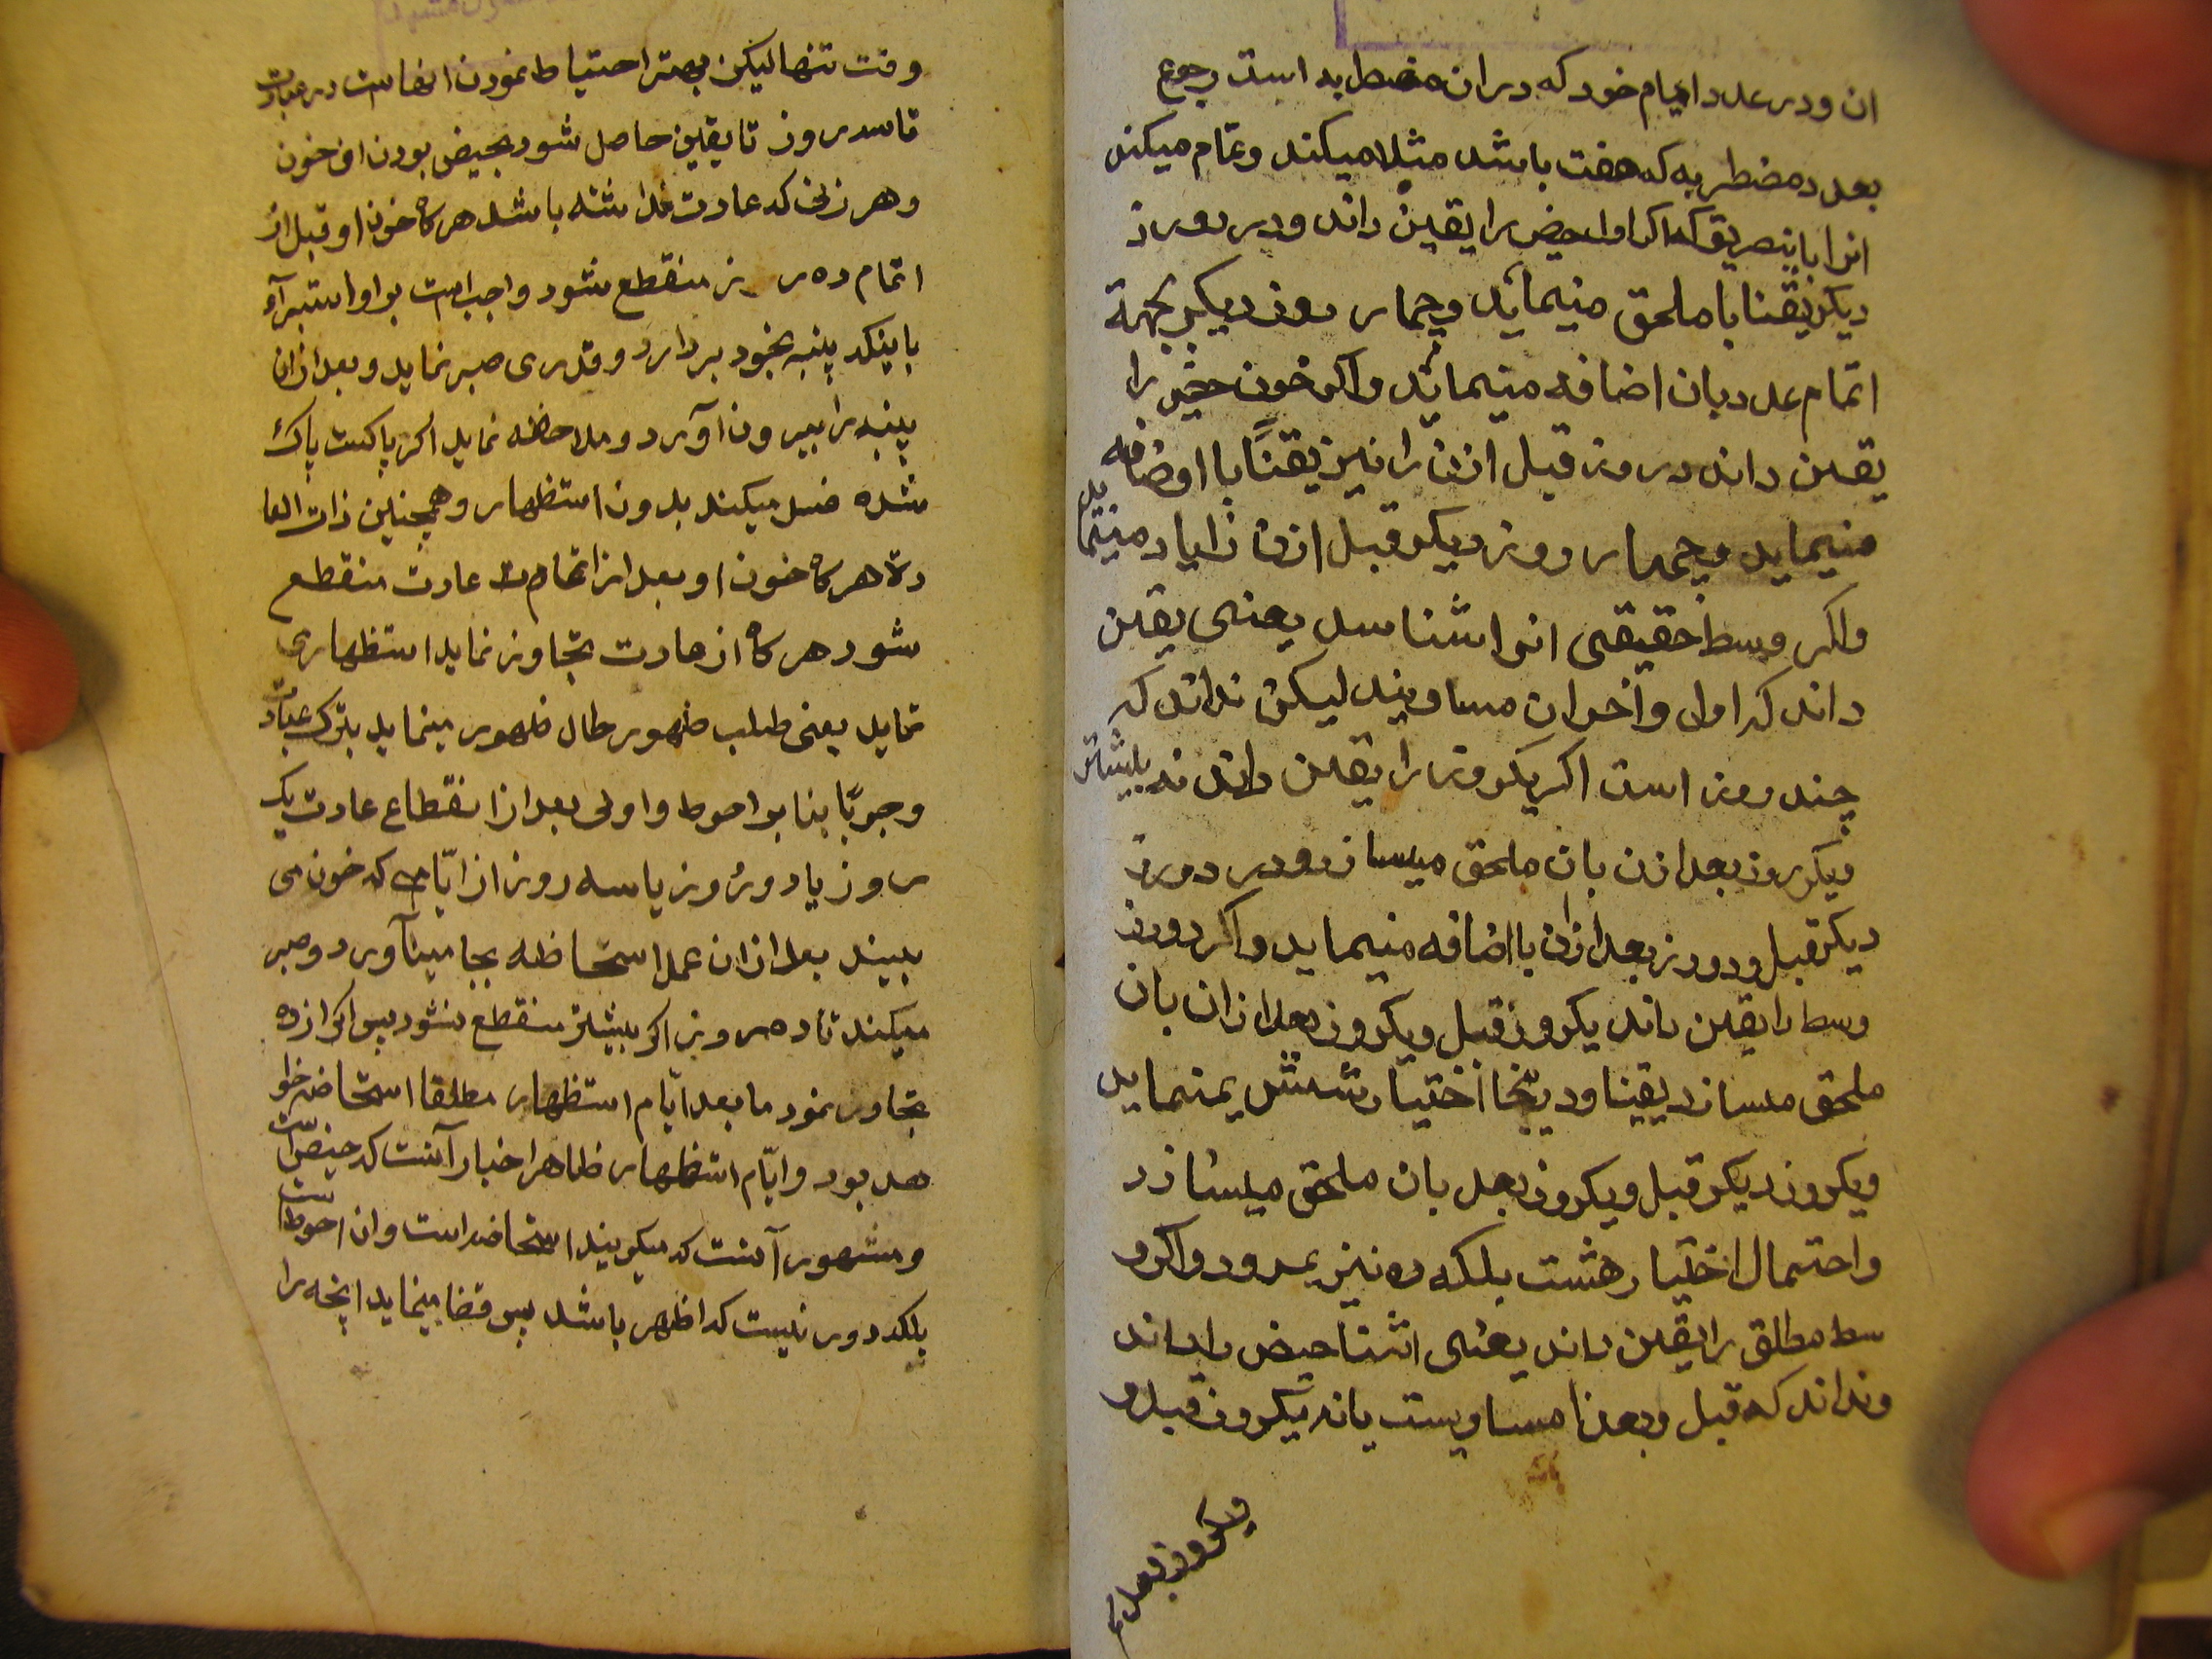 ان و در عدد ایام خود که در ان مضطربه است رجوع
بعدد مضطربه که هفت باشد مثلا میکند و تمام میکند
انرا باینطریق که اکر اول حیض را یقین داند و در روز
دیکر یقینا با ملحق مینماید و چهار روز دیکر بجهة
اتمام عدد بان اضافه مینماید واکر خون حیض را
یقین داند در روز قبل ازان را نیز یقنًا با اوضافه
مینماید و چهار روز دیکر قبل ازان زایاد مینماید
واکر وسط حقیقی انرا شناسد یعنی یقین
داند که اول و آخر ان مساویند لیکن نداند که
چند روز است اکر یکروز را یقین داند نه بیشتر
یکروز بعد ازن بان ملحق میسازد و در دوروز
دیکر قبل و دو روز بعد ازان با اضافه مینماید و اکر دوروز
وسط را یقین داند یکروز قبل و یکروز بعد ازان بان
ملحق میسازد یقینا و دینجا اختیار شش یمنماید
و یکروز دیکر قبل و یکروز بعد بان ملحق میسازد
و احتمال اختیار هشت بلکه ده نیز یمرود و اکر و
سط مطلق را یقین داند یعنی اثنا حیض را داند
و نداند که قبل و بعد نا مساویست یانه یکروز قبل و
و یکروز بعد
وقت تنها لیکن بهتر احتیاط نمودن انفاست در عبادت
تا سه روز تا یقین حاصل شود بحیض بودن ان خون
و هر زنی که عادت نداشته باشد هر کاه خون او قبل از
اتمام ده ر ز منقطع شود واجب است بر او استبرآء
باینکه پنبه بخود بردارد و قدری صبر نماید و بعد ازان
پنبه را بیرون آورد و ملاحظه نماید اکر پاکست پاک
شده غسل میکند بدون استظهار و همچنین ذات العا
دة هر کاه خون او بعد از اتمام عادت منقطع
شود هر کاه از عادت تجاوز نماید استظهاری
نماید یعنی طلب ظهور حال ظهور مینماید بترک عبادت
وجوبًا بنا بر احوط و اولی بعد از انقطاع عادت یک
روز یا دو روز یا سه روز از ایّامی که خون می
بیند بعد ازان عمل استحاظه بجا میاآورد و صبر
میکند تا ده روز اکر بیشتر منقطع نشود پس اکر از ده
تجاوز نمود ما بعد ایّام استظهار مطلقا استحاضه خوا
هد بود و ایّام استظهار ظاهر اخبار آنست که حیض است
و مشهور آنست که میکویند استحاضه است و ان احوط است
بلکه دور نیست که اظهر باشد پس قضا مینماید انچه را